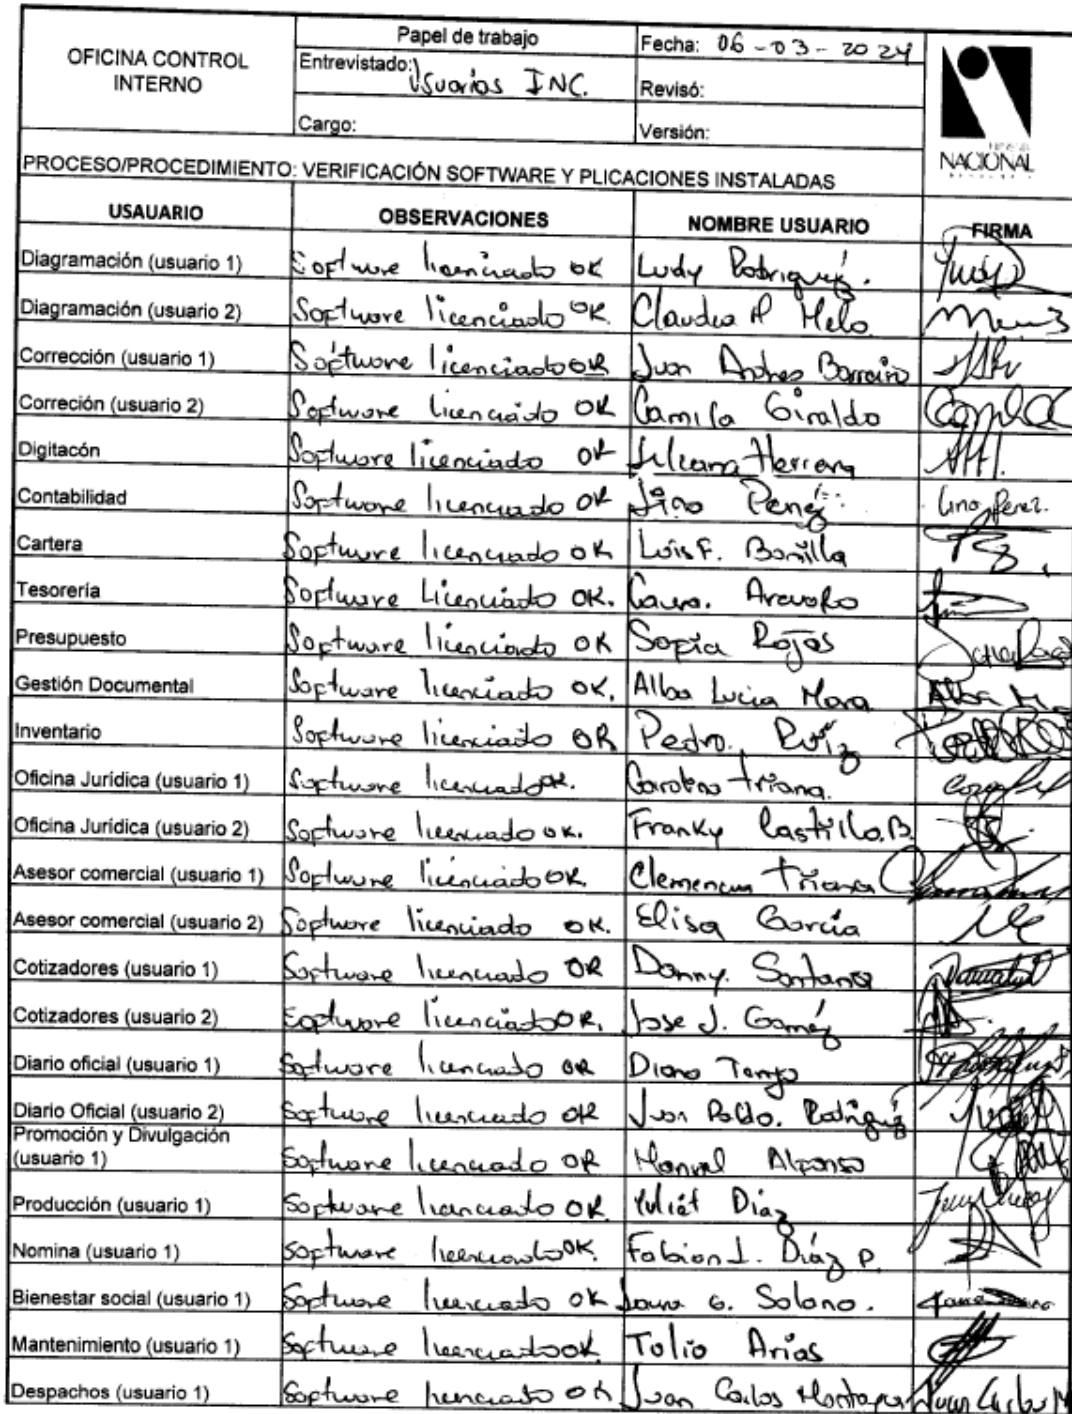 OFICINA CONTROL
INTERNO
Papel de trabajo
Fecha: 06-03-2024
Entrevistado: Usuarios INC.
Revisó:
Cargo:
Versión:
NACIONAL
PROCESO/PROCEDIMIENTO: VERIFICACIÓN SOFTWARE Y PLICACIONES INSTALADAS
USAUARIO OBSERVACIONES NOMBRE USUARIO FIRMA
Diagramación (usuario 1) Software licenciado OK Ludy Rodriguez.
Diagramación (usuario 2) Software licenciado OK Claudia P Melo
Corrección (usuario 1) Software licenciado OK Juan Andres Barreiro
Correción (usuario 2) Software licenciado OK Camila Giraldo
Digitacón Software licenciado OK Liliana Herrera
Contabilidad Software licenciado OK Lino Perez Lino Perez.
Cartera Software licenciado OK Luis F. Bonilla
Tesorería Software Licenciado OK. Laura. Arevalo
Presupuesto Software licenciado OK Sofia Rojas
Gestión Documental Software licenciado OK. Alba Lucia Mora Alba M.
Inventario Software licenciado OK Pedro. Ruiz
Oficina Jurídica (usuario 1) Software licenciado OK. Carolina Triana.
Oficina Jurídica (usuario 2) Software licenciado OK. Franky Castillo.B.
Asesor comercial (usuario 1) Software licenciado OK. Clemencia Triana
Asesor comercial (usuario 2) Software licenciado OK. Elisa García
Cotizadores (usuario 1) Software licenciado OK Danny. Santana
Cotizadores (usuario 2) Software licenciado OK. Jose J. Gomez
Diario oficial (usuario 1) Software licenciado OK Diana
Diario Oficial (usuario 2) Software licenciado OK Juan Pablo. Rodriguez
Promoción y Divulgación
(usuario 1) Software licenciado OK Manuel Alfonso
Producción (usuario 1) Software licenciado OK Yuliet Díaz
Nomina (usuario 1) Software licenciado OK. Fabian J. Díaz P.
Bienestar social (usuario 1) Software licenciado OK Laura G. Solano.
Mantenimiento (usuario 1) Software licenciado OK. Tulio Arias
Despachos (usuario 1) Software licenciado OK Juan Carlos Juan Carlos M